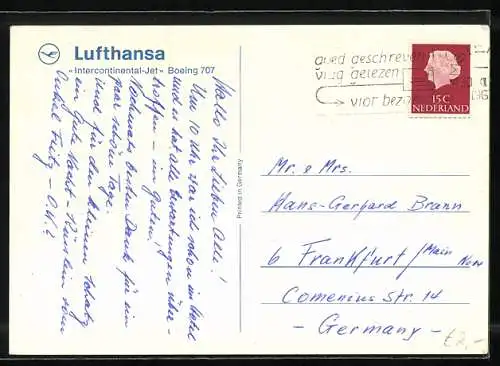 Lufthansa
»Intercontinental-Jet« Boeing 707
Hallo Ihr Lieben Alle!
Um 10 Uhr war ich schon im Hotel
und es hat alle Erwartungen über-
troffen - im Guten!
Nochmals besten Dank für ein
paar schöne Tage.
Und für den kleinen Schatz
ein Gute Nacht - Küsslein vom
Onkel Fritz -
Printed in Germany
goed geschreven
vlug gelezen
vlot bezo
15C
NEDERLAND
Mr. & Mrs.
Hans-Gerhard Brann
6 Frankfurt/Main
Comenius Str. 14
- Germany -
€2,-